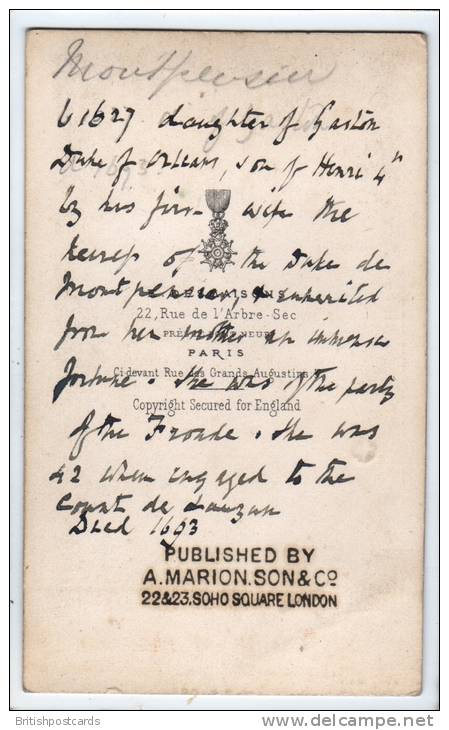 Montpensier
b 1627 daughter of Gaston
Duke of Orleans, son of Henri 4th
d 1693
by his first wife the
heiress of the Duke de
Montpensier, & inherited
22, Rue de l'Arbre-Sec
from her mother an immense
PARIS
Ci-devant Rue des Grands Augustins
fortune. She was of the party
Copyright Secured for England
of the Fronde. She was
42 when engaged to the
Count de Lauzun
Died 1693
PUBLISHED BY
A. MARION. SON & Co
22&23. SOHO SQUARE LONDON
Britishpostcards
delcampe.net